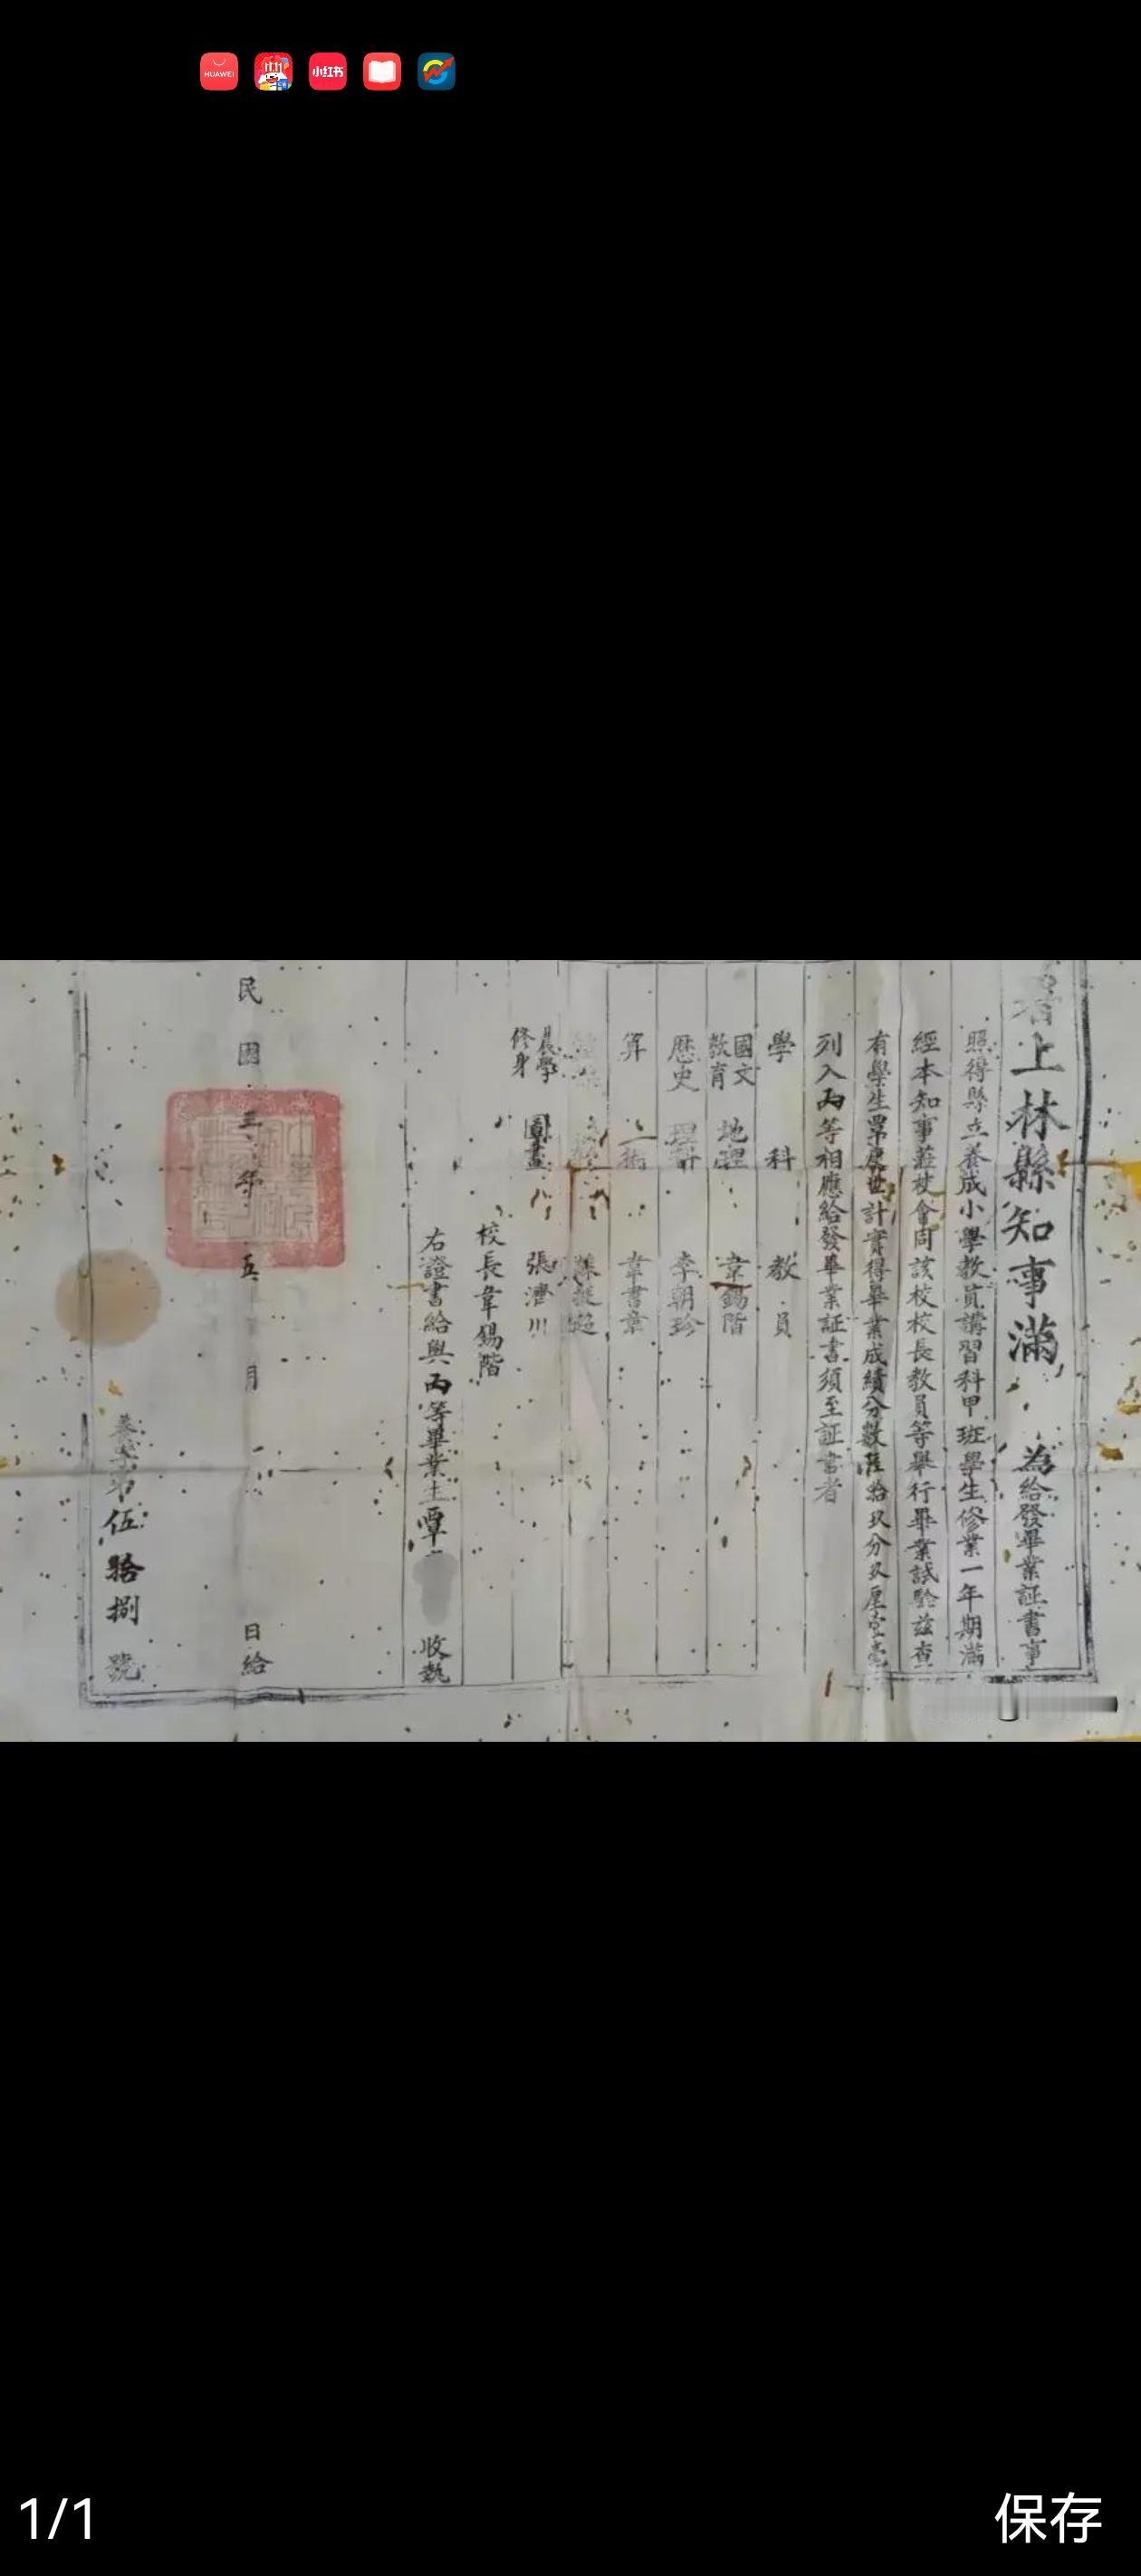 HUAWEI
11.11
小红书
署上林縣知事滿 為給發畢業証書事
照得縣立養成小學教員講習科甲班學生修業一年期滿
經本知事蒞校會同該校校長教員等舉行畢業試驗茲查
有學生覃處世計實得畢業成績分數陸拾玖分玖厘壹毫
列入丙等相應給發畢業証書須至証書者
學 科 教 員
國文 教育 地理 韋錫階
歷史 理科 李朝珍
算 術 韋書章
農學 修身 圖畫 張濟川
校長韋錫階
右證書給與丙等畢業生覃 收執
民國三年五月 日給
第伍拾捌號
1/1
保存